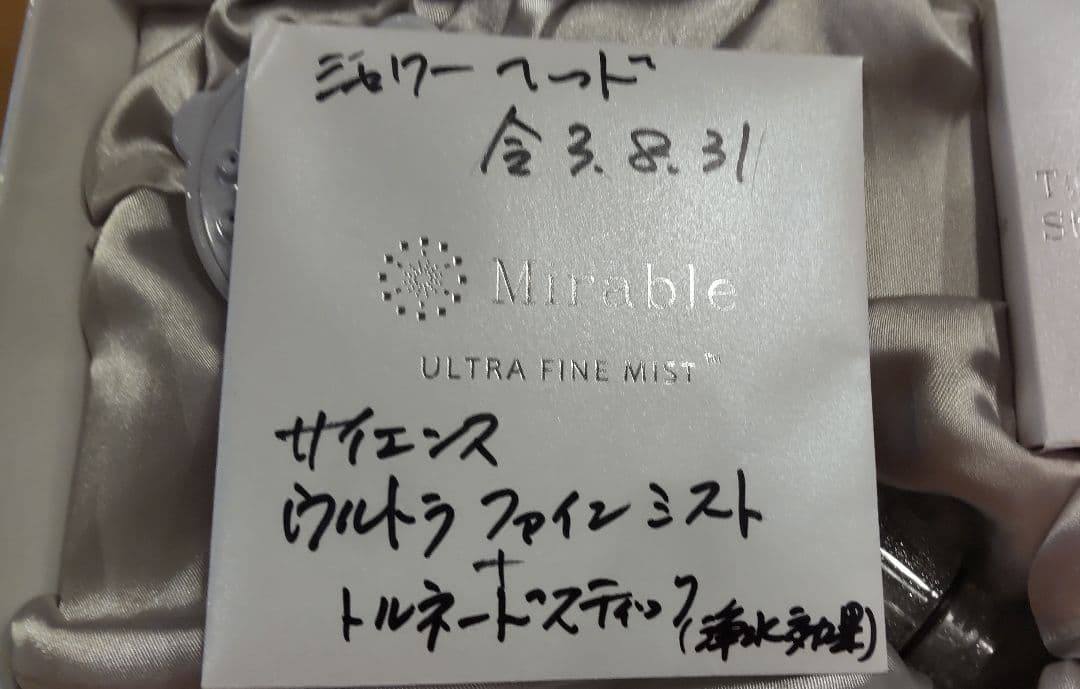 シャワーヘッド
令3.8.31
Mirable
ULTRA FINE MIST™
サイエンス
ウルトラファインミスト
+
トルネードスティック(浄水効果)